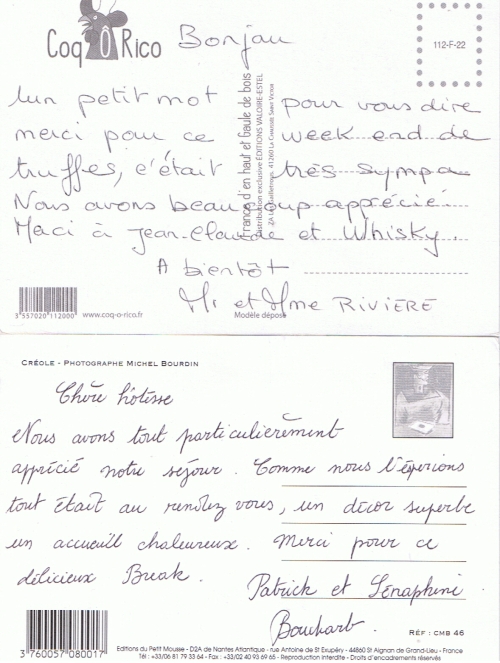 Coq Ô Rico
Bonjour
112-F-22
Un petit mot pour vous dire
merci pour ce week end de
truffes, c'était très sympa
Nous avons beaucoup apprécié.
Merci à Jean-Claude et Whisky.
A bientôt
Mr et Mme RIVIERE
France d'en haut et Gaule de bois
Distribution exclusive ÉDITIONS VALOIRE-ESTEL
3 557020 112000
www.coq-o-rico.fr
Modèle déposé
CRÉOLE - PHOTOGRAPHE MICHEL BOURDIN
Chère hôtesse
Nous avons tout particulièrement
apprécié notre séjour. Comme nous l'éspérions
tout était au rendez vous, un décor superbe
un accueill chaleureux. Merci pour ce
délicieux Break.
Patrick et
3 760057 080017
RÉF : CMB 46
Editions du Petit Mousse - D2A de Nantes Atlantique - rue Antoine de St Exupéry - 44860 St Aignan de Grand-Lieu - France
Tél : +33/06 81 79 33 64 - Fax : +33/02 40 93 69 65 - Reproduction Interdite - Droits d'encadrements réservés